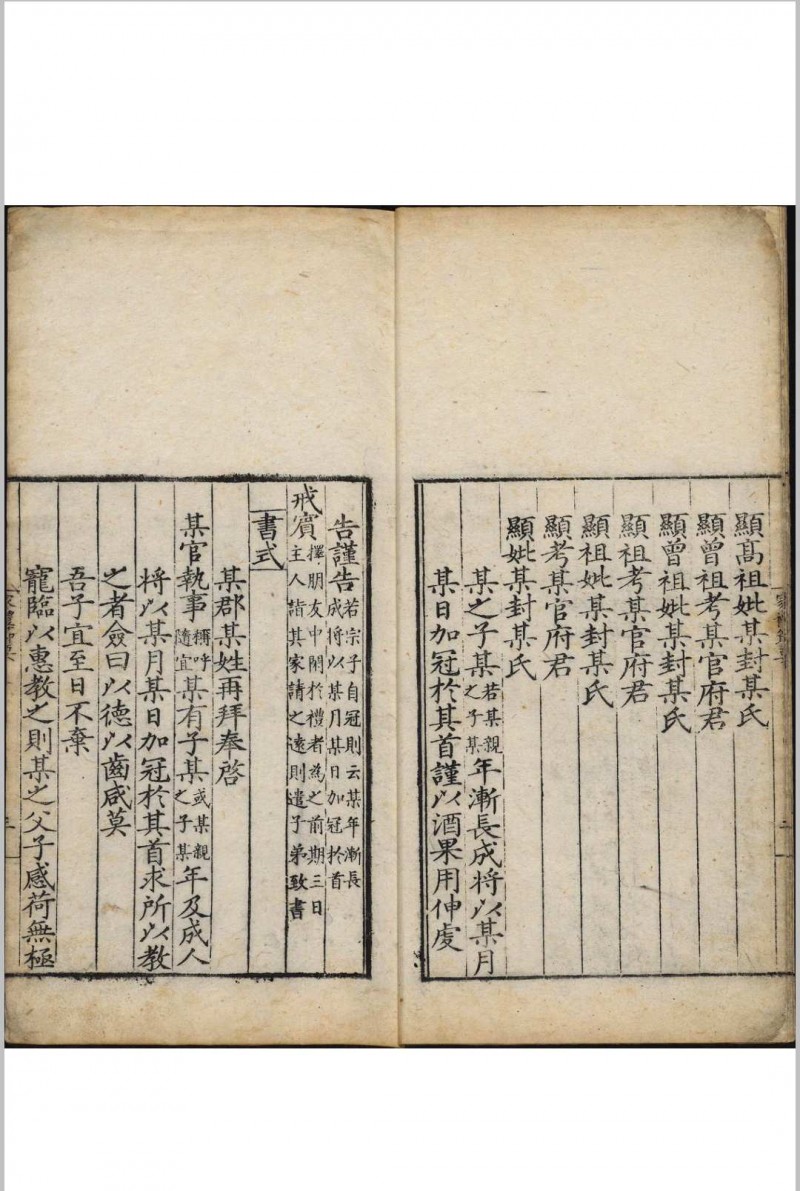 顯高祖妣某封某氏
顯曾祖考某官府君
顯曾祖妣某封某氏
顯祖考某官府君
顯祖妣某封某氏
顯考某官府君
顯妣某封某氏
某之子某若某親之子某年漸長成將以某月
某日加冠於其首謹以酒果用伸虔
告謹告若宗子自冠則云某年漸長成將以某月某日加冠於首
戒賔擇朋友中閑於禮者為之前期三日主人詣其家請之遠則遣子弟致書
書式
某郡某姓再拜奉啓
某官執事稱呼隨宜某有子某或某親之子某年及成人
將以某月某日加冠於其首求所以教
之者僉曰以德以齒咸莫
吾子宜至日不棄
寵臨以惠教之則某之父子感荷無極